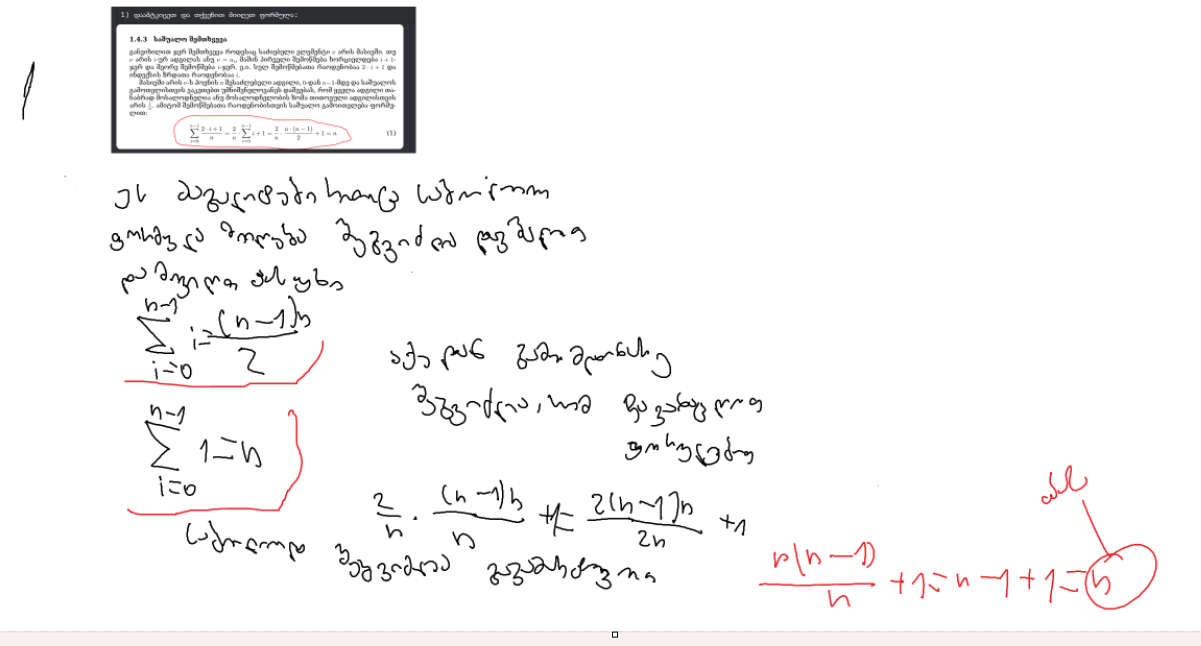 1) დაამტკიცეთ და თქვენით მიიღეთ ფორმულა:
1.4.3 საშუალო შემთხვევა
განვიხილოთ ჯერ შემთხვევა როდესაც საძიებელი ელემენტი v არის მასივში. თუ
v არის i-ურ ადგილას ანუ v = aᵢ, მაშინ პირველი შემოწმება ხორციელდება i + 1-
ჯერ და მეორე შემოწმება i-ჯერ. ე.ი. სულ შემოწმებათა რაოდენობაა 2 · i + 1 და
ინდექსის ზრდათა რაოდენობაა i.
მასივში არის v-ს პოვნის n შესაძლებელი ადგილი, 0-დან n−1-მდე და საშუალოს
გამოთვლისთვის ვაკეთებთ უმნიშვნელოვანეს დაშვებას, რომ ყველა ადგილი თა-
ნაბრად მოსალოდნელია ანუ მოსალოდნელობის ზომა თითოეული ადგილისთვის
არის 1/n. ამიტომ შემოწმებათა რაოდენობისთვის საშუალო გამოითვლება ფორმუ-
ლით:
∑_{i=0}^{n−1} (2·i+1)/n = 2/n · ∑_{i=0}^{n−1} i + 1 = 2/n · n·(n−1)/2 + 1 = n (1)
1
ეს მაგალითები როცა საბოლოო
ფორმულა მოღება შეგვიძლია დავშალოთ
და მივიღოთ პასუხი
∑_{i=0}^{n-1} i = (n-1)n/2
აქედან გამომდინარე
შეგვიძლია, რომ ჩავანაცვლოთ
∑_{i=0}^{n-1} 1 = n
ფორმულებით
2/n · (n-1)n/n + 1 = 2(n-1)n/2n + 1
საბოლოოდ შეგვიძლია გავამარტივოთ
n(n-1)/n + 1 = n - 1 + 1 = n
პას